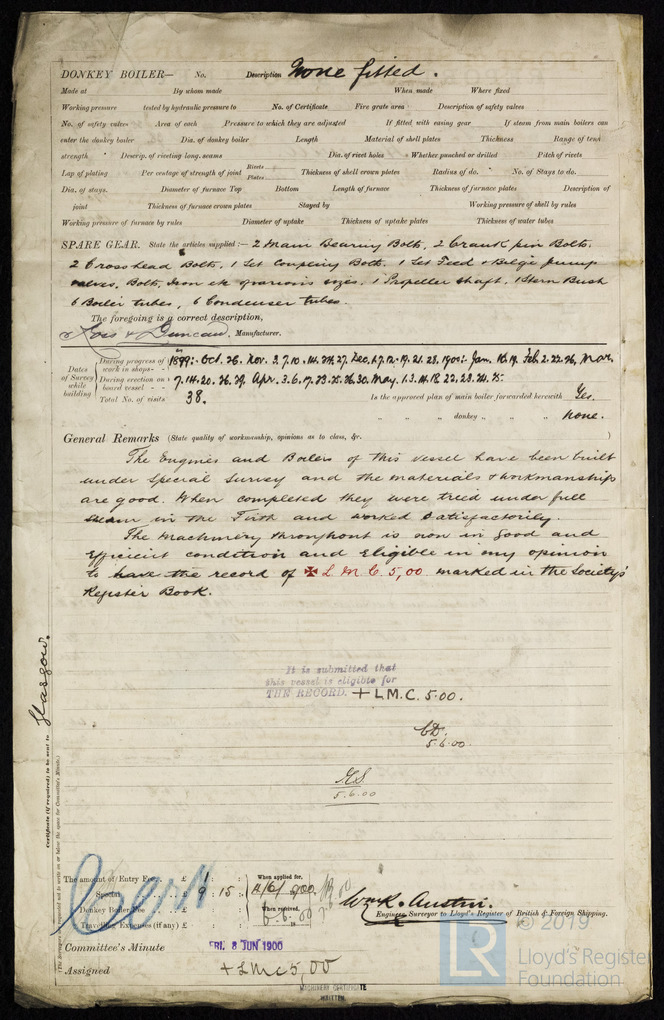 DONKEY BOILER— No. Description None fitted.
Made at By whom made When made Where fixed
Working pressure tested by hydraulic pressure to No. of Certificate Fire grate area Description of safety valves
No. of safety valves Area of each Pressure to which they are adjusted If fitted with easing gear If steam from main boilers can
enter the donkey boiler Dia. of donkey boiler Length Material of shell plates Thickness Range of tens
strength Descrip. of riveting long. seams Dia. of rivet holes Whether punched or drilled Pitch of rivets
Lap of plating Per centage of strength of joint Rivets Plates Thickness of shell crown plates Radius of do. No. of Stays to do.
Dia. of stays. Diameter of furnace Top Bottom Length of furnace Thickness of furnace plates Description of
joint Thickness of furnace crown plates Stayed by Working pressure of shell by rules
Working pressure of furnace by rules Diameter of uptake Thickness of uptake plates Thickness of water tubes
SPARE GEAR. State the articles supplied:— 2 Main Bearing Bolts, 2 Crank pin Bolts,
2 Crosshead Bolts, 1 Set Coupling Bolts, 1 Set Feed & Bilge Pump
valves, Bolts, Iron etc of various sizes, 1 Propeller shaft, 1 Stern Bush
6 Boiler tubes, 6 Condenser tubes.
The foregoing is a correct description,
Ross & Duncan, Manufacturer.
Dates of Survey while building
During progress of work in shops - - 1899:- Oct. 26. Nov. 3.7.10.14.24.27. Dec. 1.7.12.19.21.28. 1900:- Jan. 16.19. Feb. 2.22.26. Mar.
During erection on board vessel - - 7.14.20.26.29. Apr. 3.6.17.23.25.26.30. May. 1.3.14.18.22.23.24.25.
Total No. of visits 38. Is the approved plan of main boiler forwarded herewith Yes.
" " donkey " " " None.
General Remarks (State quality of workmanship, opinions as to class, &c. )
The Engines and Boilers of this vessel have been built
under special survey and the materials & workmanship
are good. When completed they were tried under full
steam in the Firth and worked satisfactorily.
The Machinery throughout is now in good and
efficient condition and eligible in my opinion
to have the record of ✠ L M C. 5,00 marked in the Society's
Register Book.
It is submitted that
this vessel is eligible for
THE RECORD. + L.M.C. 5.00.
5.6.00.
5.6.00
Glasgow.
Certificate (if required) to be sent to
The amount of Entry Fee.. £ 1 : : When applied for,
Special .. .. £ 9 : 15 : 4/6/1900
Donkey Boiler Fee .. .. £ : : When received,
Travelling Expenses (if any) £ : : 6.6.00
Wm. R. Austin.
Engineer Surveyor to Lloyd's Register of British & Foreign Shipping.
Committee's Minute FRI. 8 JUN 1900
Assigned + LMC 5,00
MACHINERY CERTIFICATE
WRITTEN
© 2019
LR Lloyd's Register
Foundation